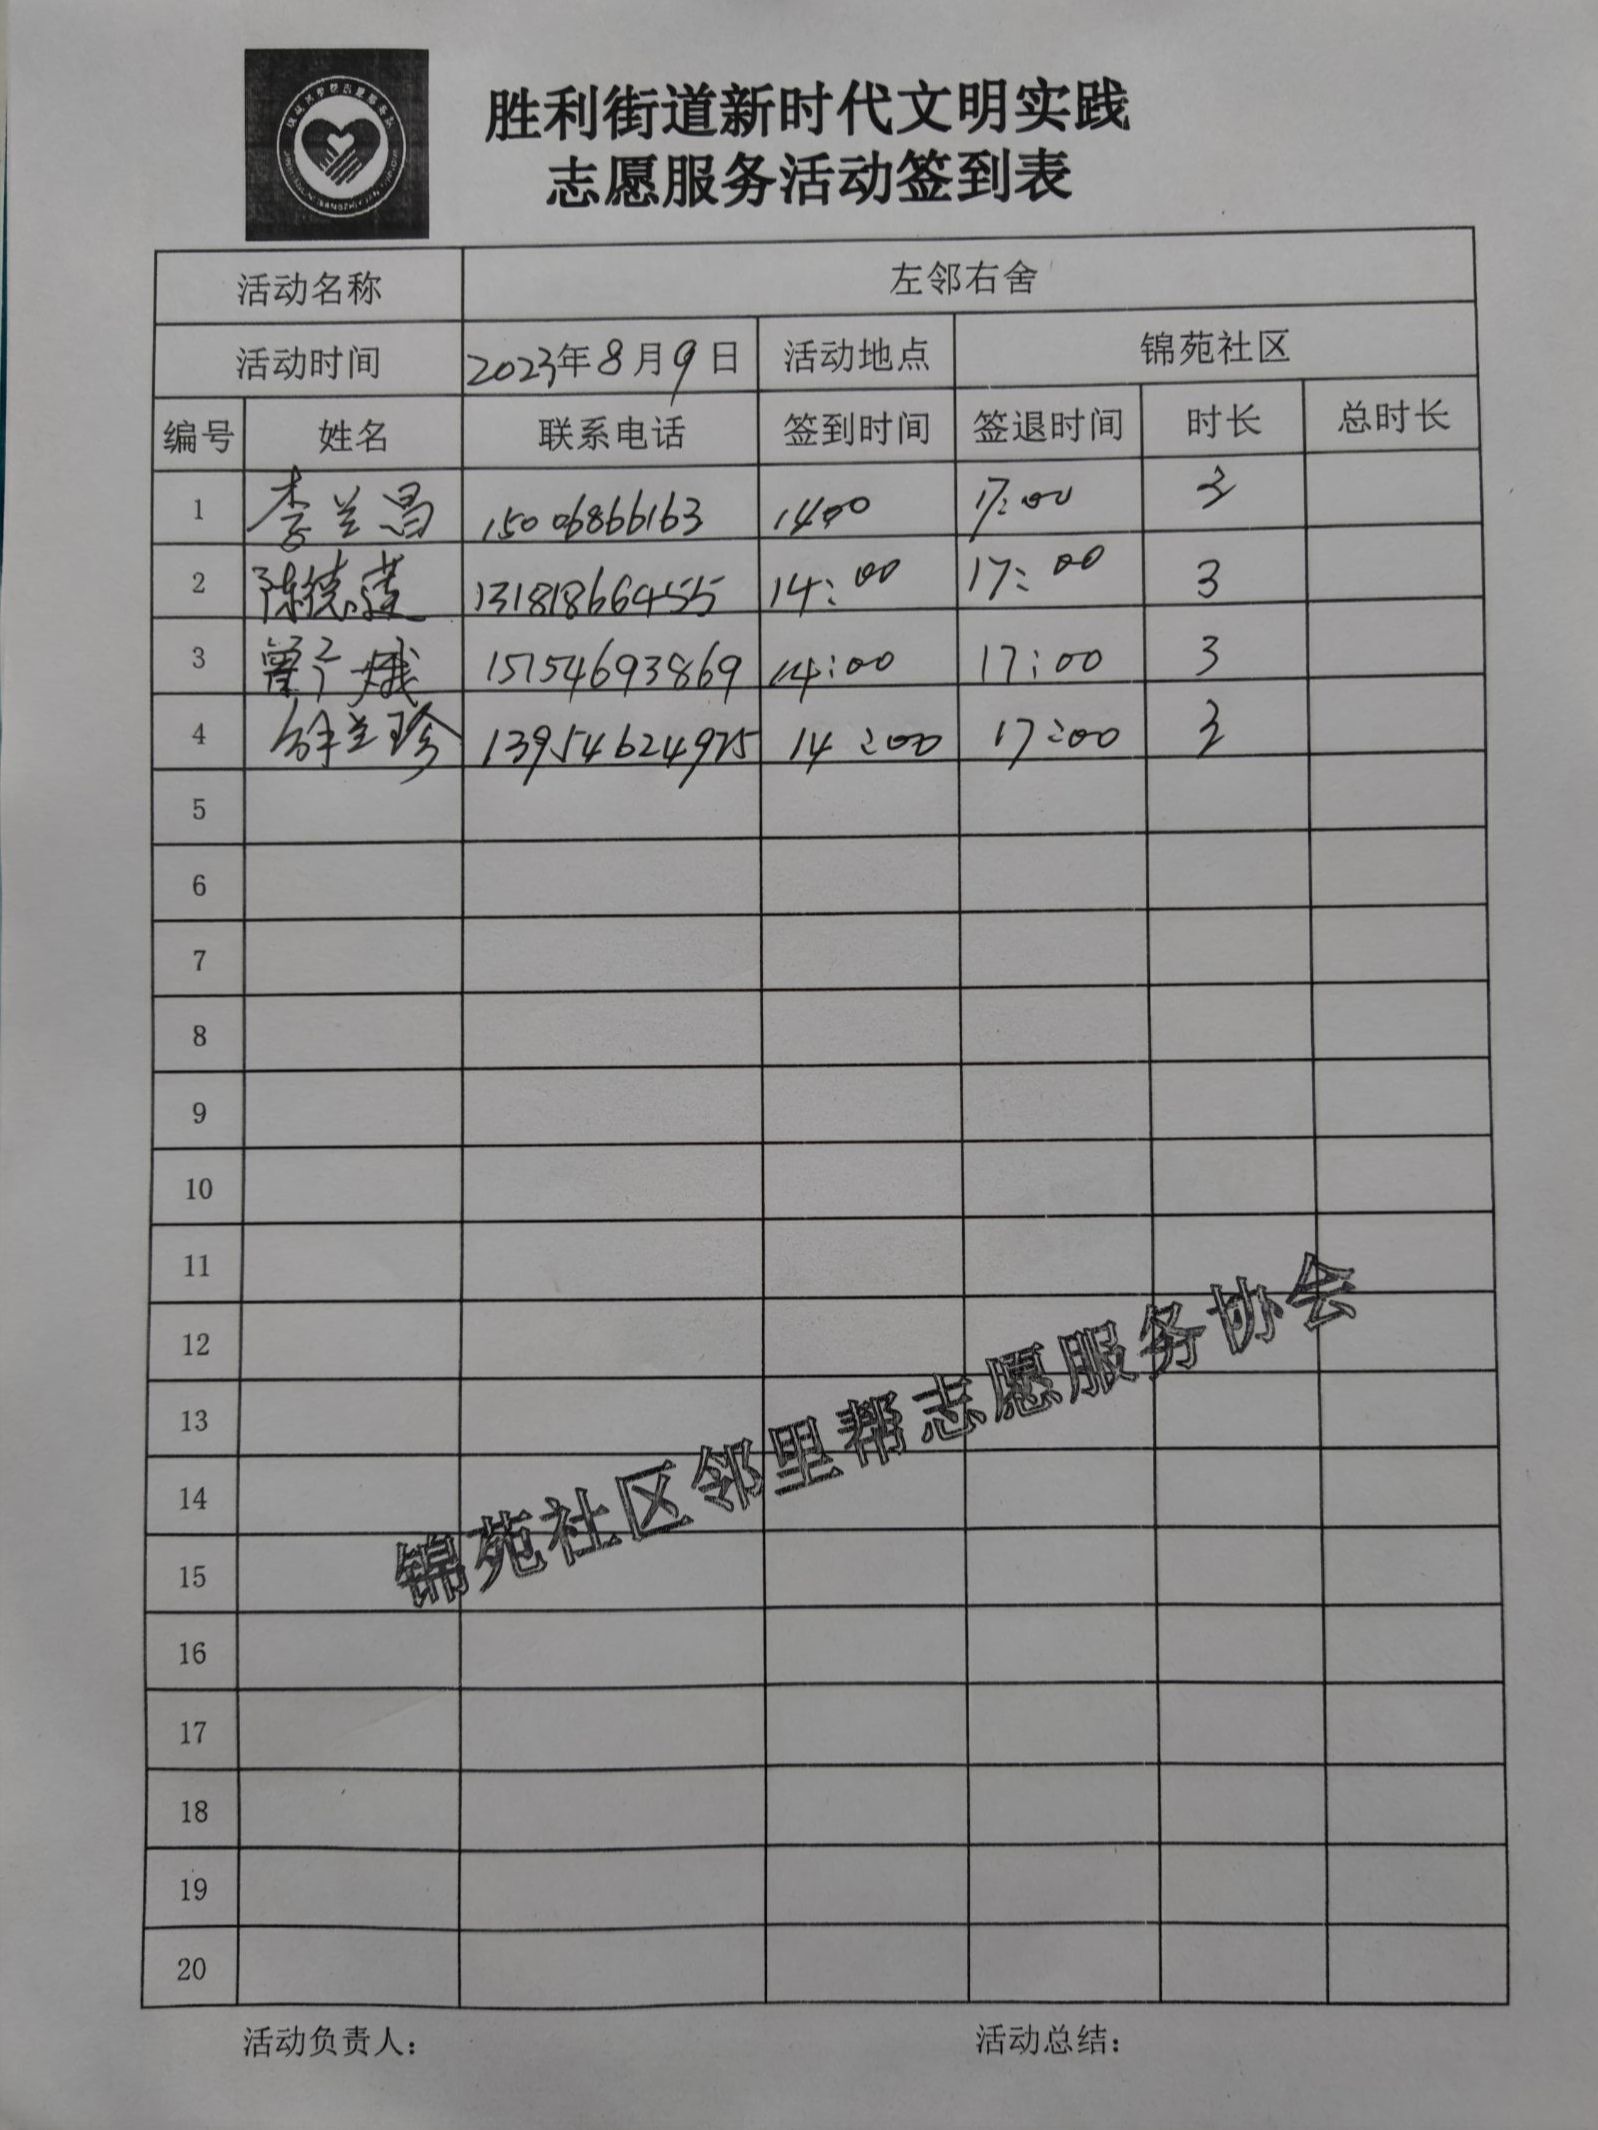 胜利街道新时代文明实践
志愿服务活动签到表
活动名称 左邻右舍
活动时间 2023年8月9日 活动地点 锦苑社区
编号 姓名 联系电话 签到时间 签退时间 时长 总时长
1 李兰昌 15006866163 1400 17:00 3
2 陈德莲 13181866455 14:00 17:00 3
3 曾广娥 15154693869 14:00 17:00 3
4 兰珍 13954624975 14:00 17:00 3
5
6
7
8
9
10
11
12
13
14
15
16
17
18
19
20
锦苑社区邻里帮志愿服务协会
活动负责人: 活动总结: